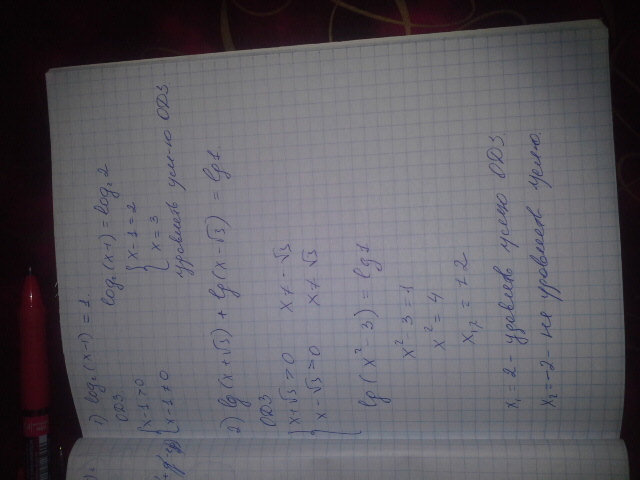 1) log₂(x-1) = 1.
ОДЗ
{x-1>0
{x-1≠0
log₂(x-1) = log₂2
{x-1=2
{x=3
удовлеть усл-ю ОДЗ
2) lg(x+√3) + lg(x-√3) = lg1
ОДЗ
{x+√3>0 x≠-√3
{x-√3>0 x≠√3
lg(x²-3) = lg1
x²-3=1
x²=4
x₁,₂ = ±2
x₁=2 - удовлеть услю ОДЗ
x₂=-2 - не удовлеть услю.